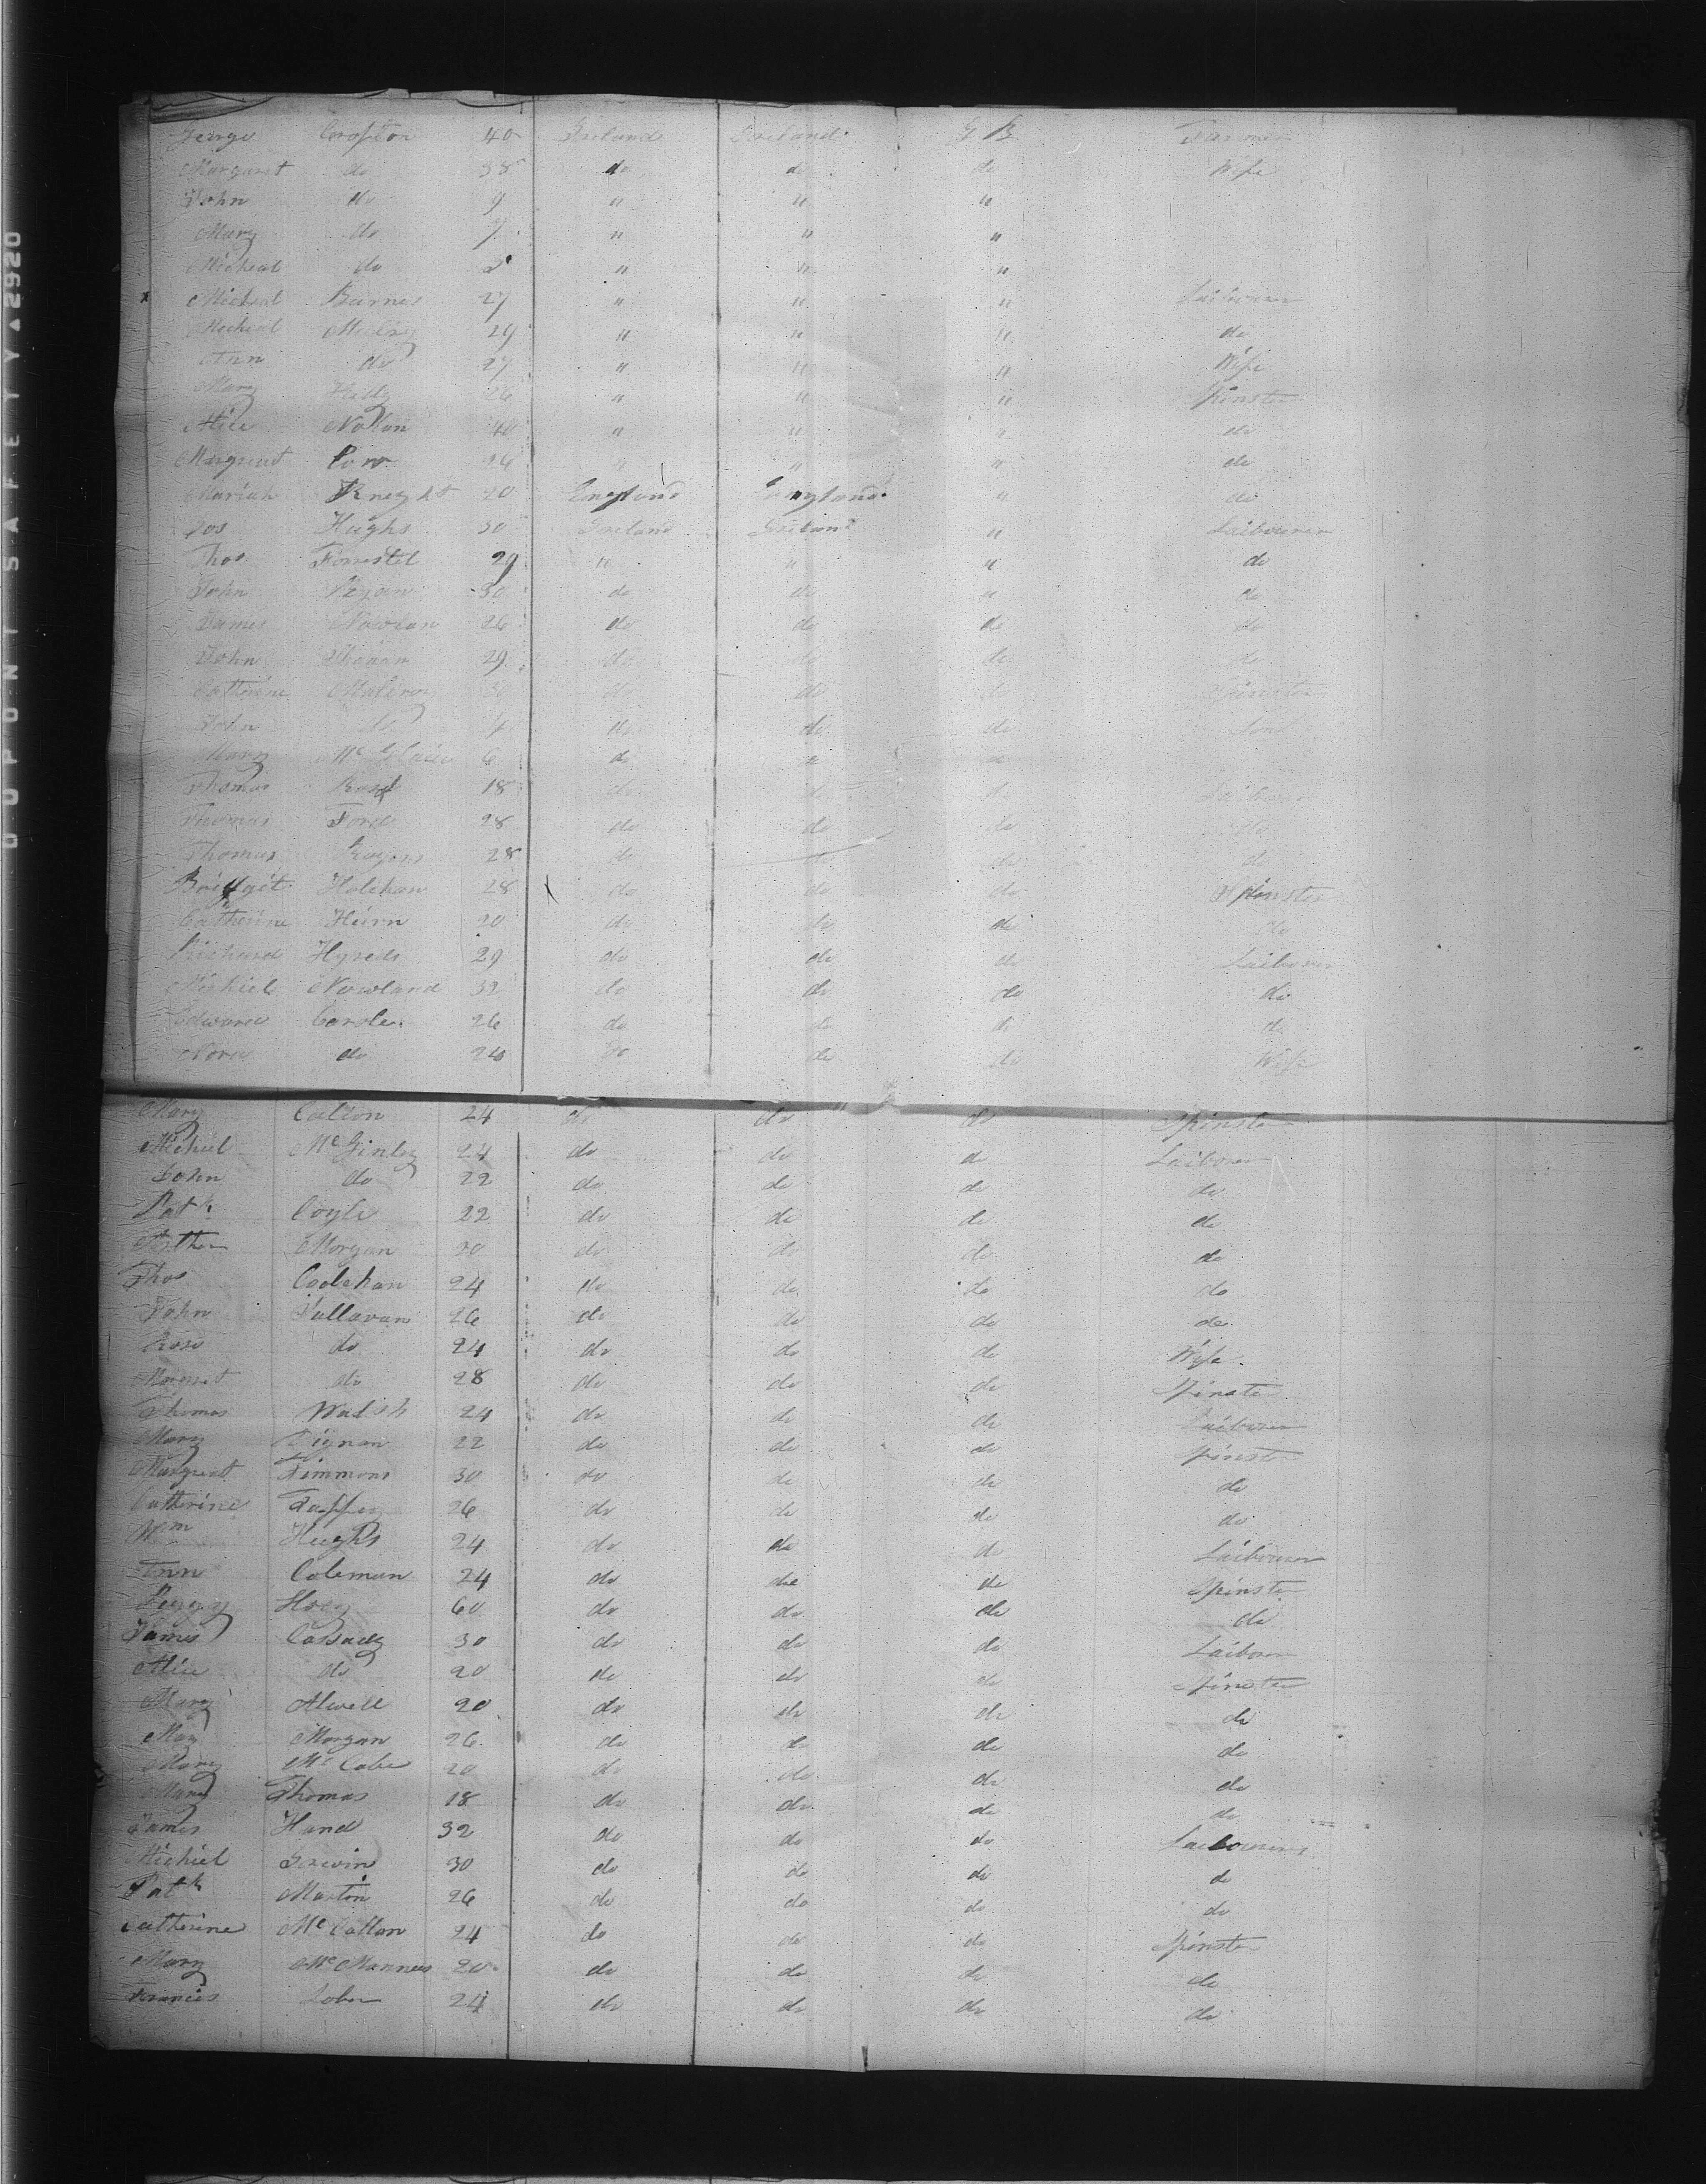 George Crofton 40 Ireland Ireland G B Farmer
Margaret do 38 do do do Wife
John do 9 " " "
Mary do 7 " " "
Micheal do 2 " " "
Micheal Burnes 27 " " " Laibourer
Micheal 29 " " " do
Ann do 27 " " " Wife
Mary 26 " " " Spinster
Alice Nolan 40 " " " do
Margreat 26 " " " do
Mariah Kneght 20 England England " do
Jos Hughs 30 Ireland Ireland " Laibourer
Thos Forrestel 29 " " " do
John Ryan 30 do do " do
James Nowlan 26 do do do do
John 29 do do do do
Catherine 30 do do do Spinster
John do 4 do do do Son
Mary 6 do
Thomas 18 do do do Laibourer
Thomas Ford 28 do do do do
Thomas Rogers 28 do do do do
Bridget Holehan 28 do do do Spinster
Catherine Hurn 20 do do do do
Richard 29 do do do Laibourer
Michiel Nowland 32 do do do do
Edward Carole 26 do do do do
Nora do 24 do do do Wife
Mary 24 do do do Spinster
Michiel McGinley 24 do do do Laibourer
John do 22 do do do do
Patk Coyle 22 do do do do
Morgan 30 do do do do
Thos Coolahan 24 do do do do
John 26 do do do do
Rose do 24 do do do Wife
Margreat do 28 do do do Spinster
Thomas Walsh 24 do do do Laibourer
Mary Dignan 22 do do do Spinster
Margreat Timmons 30 do do do do
Catherine Taffey 26 do do do do
Wm Hughs 24 do do do Laibourer
Ann Coleman 24 do do do Spinster
Peggy Hoey 60 do do do do
James Cassady 30 do do do Laibourer
Alice do 20 do do do Spinster
Mary Atwell 20 do do do do
May Morgan 26 do do do do
Mary McCabe 20 do do do do
Mary Thomas 18 do do do do
James Hand 32 do do do Laibourer
Michiel 30 do do do do
Patk Martin 26 do do do do
Catherine McCallan 24 do do do Spinster
Mary McMannus 20 do do do do
Francis 24 do do do do
DUPONT SAFETY ▲ 2920